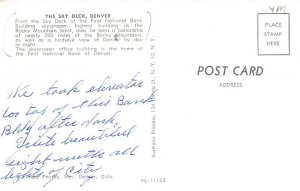 THE SKY DECK, DENVER
From the Sky Deck of the First National Bank
Building skyscraper, highest building in the
Rocky Mountain West, may be seen a panorama
of nearly 200 miles of the Rocky Mountains,
as well as a birdseye view of Denver by day
or at night.
The skyscraper office building is the home of
the First National Bank of Denver.
We took elevator
too top of this Bank
Bldg after dark,
Quite beautiful
sight with all
lights of City
PLACE
STAMP
HERE
POST CARD
ADDRESS
YL-11163
Denver, Colo.